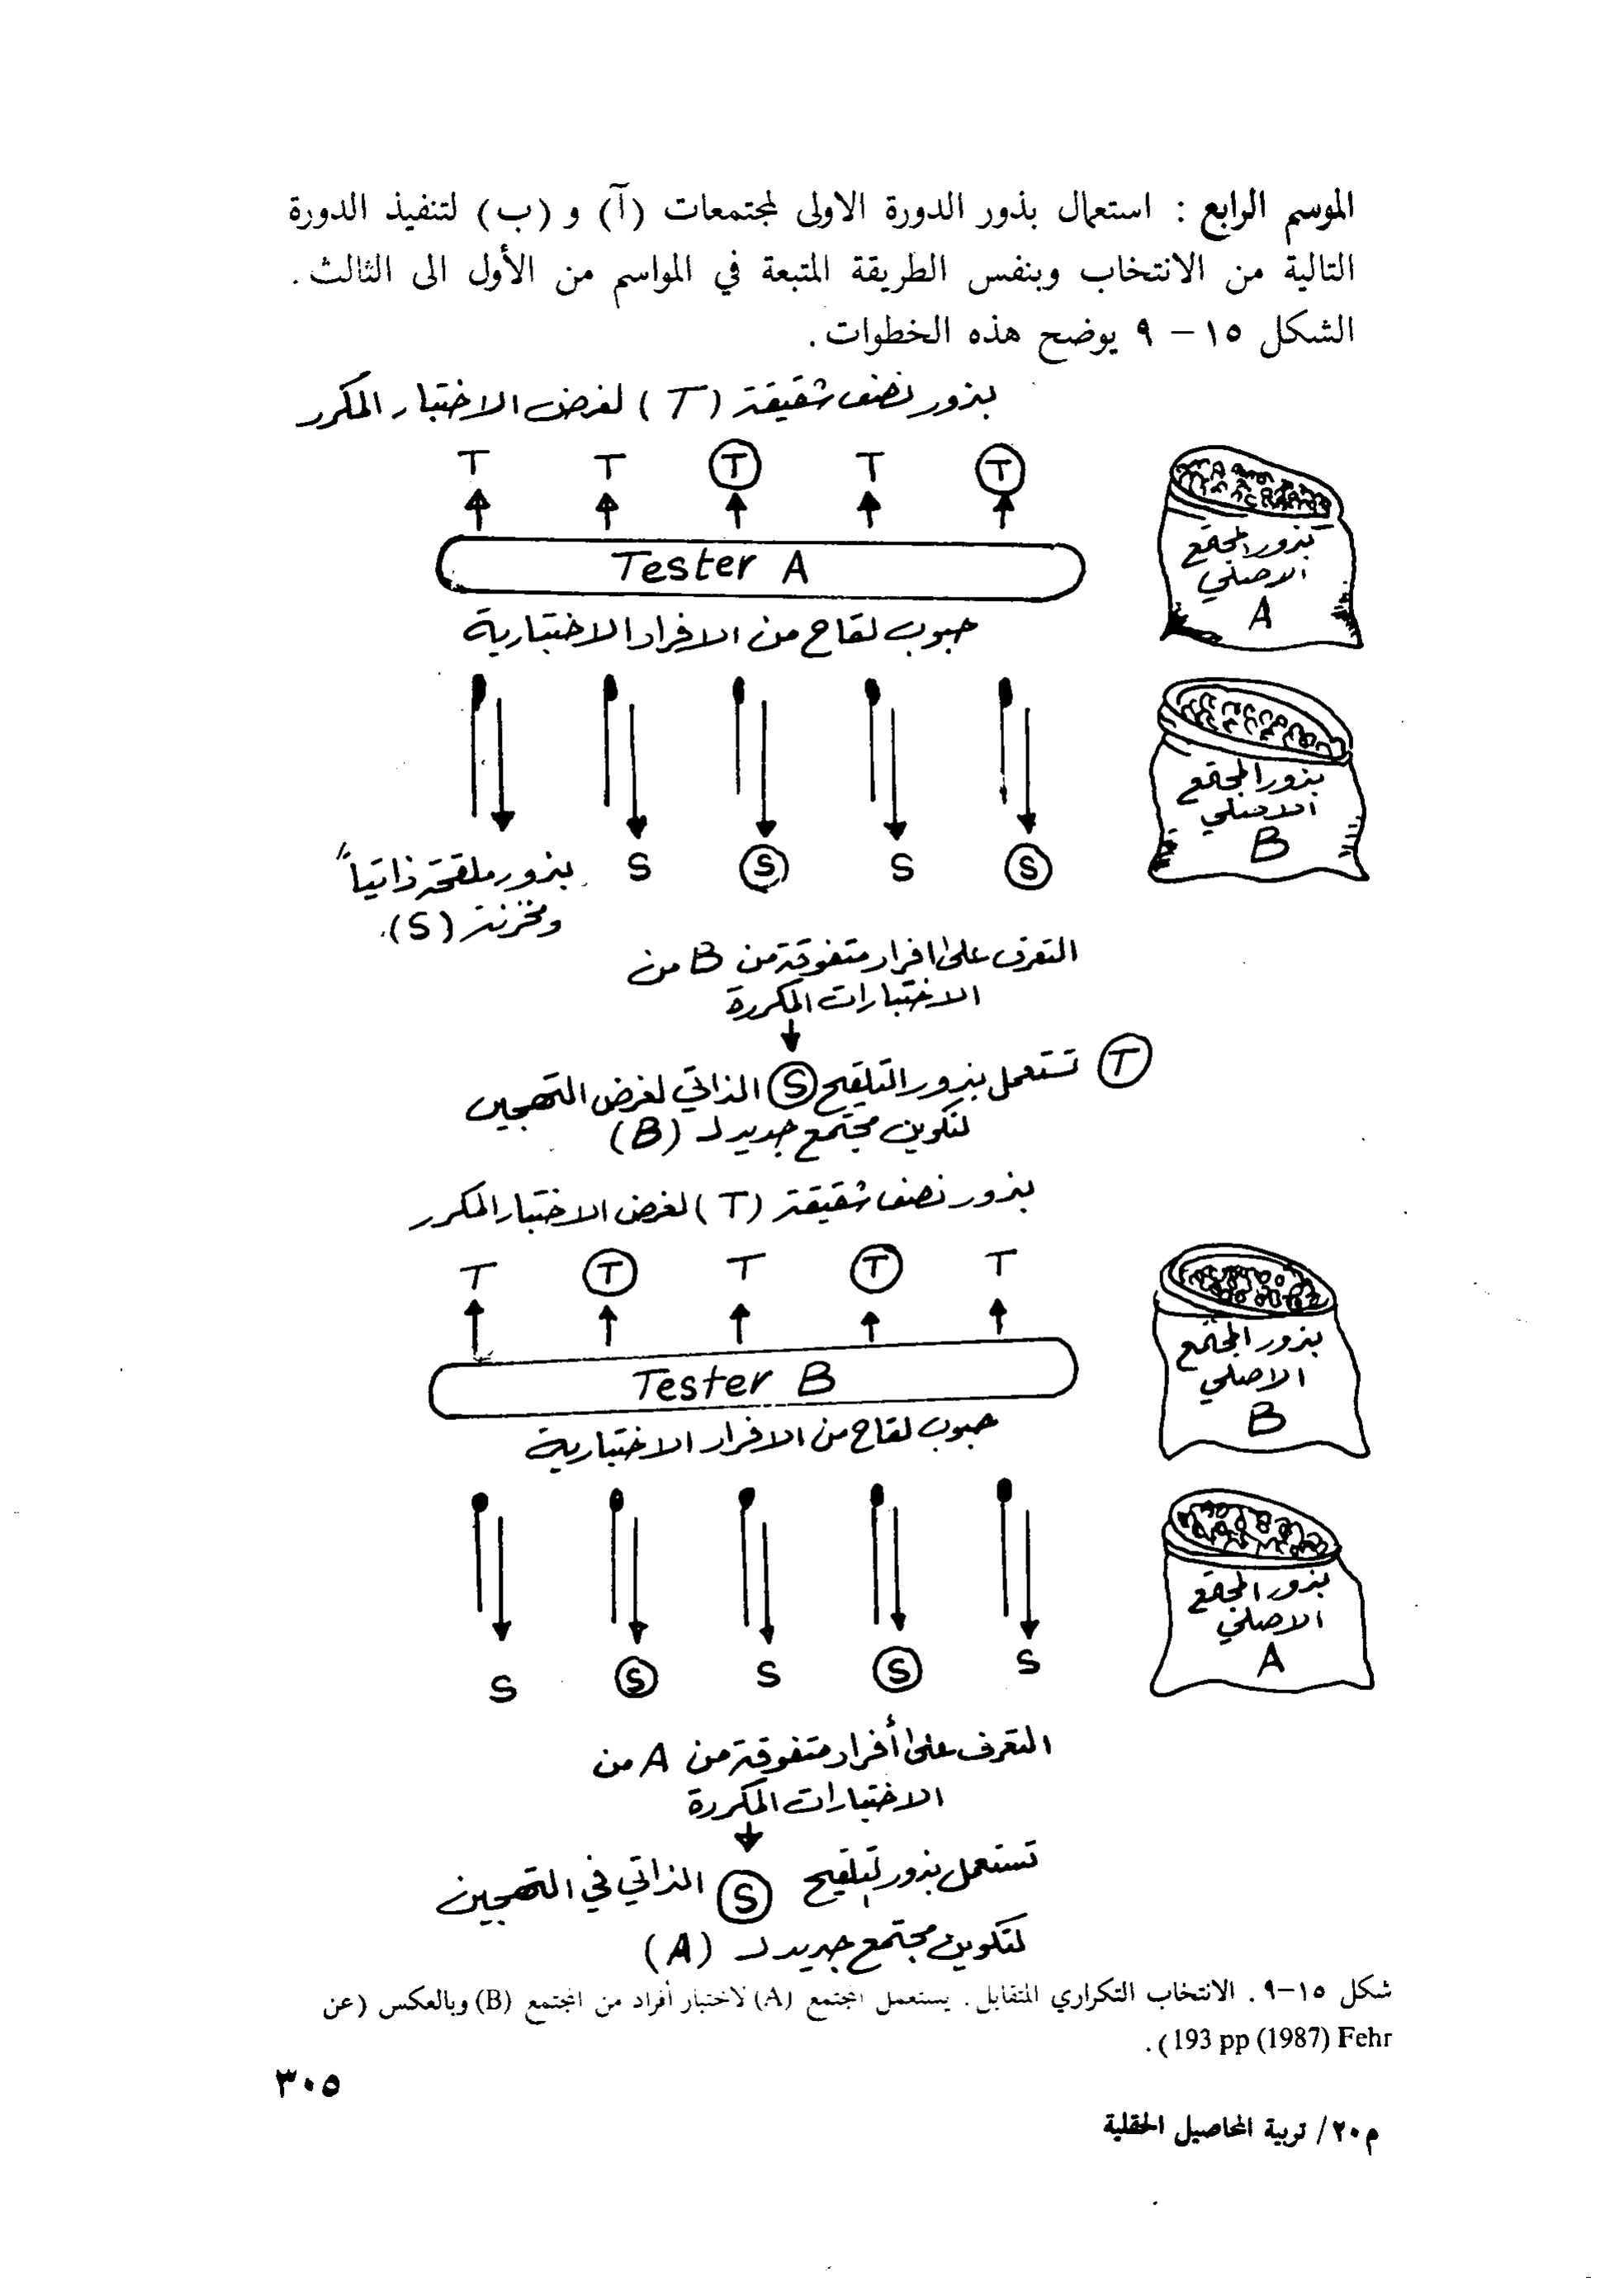 الموسم الرابع : استعمال بذور الدورة الاولى لمجتمعات (آ) و (ب) لتنفيذ الدورة
التالية من الانتخاب وبنفس الطريقة المتبعة في المواسم من الأول الى الثالث .
الشكل ١٥ – ٩ يوضح هذه الخطوات .
بذور نصف شقيقة (T) لغرض الاختبار المكرر
T T T T T
بذور المجتمع
الاصلي
A
Tester A
حبوب لقاح من الافراد الاختبارية
بذور المجتمع
الاصلي
B
S S S S
بذور ملقحة ذاتياً
ومخزنة (S).
التعرف على افراد متفوقة من B من
الاختبارات المكررة
T تستعمل بذور التلقيح S الذاتي لغرض التهجين
لتكوين مجتمع جديد لـ (B)
بذور نصف شقيقة (T) لغرض الاختبار المكرر
T T T T T
بذور المجتمع
الاصلي
B
Tester B
حبوب لقاح من الافراد الاختبارية
بذور المجتمع
الاصلي
A
S S S S S
التعرف على أفراد متفوقة من A من
الاختبارات المكررة
تستعمل بذور التلقيح S الذاتي في التهجين
لتكوين مجتمع جديد لـ (A)
شكل ١٥–٩ . الانتخاب التكراري المتقابل . يستعمل المجتمع (A) لاختبار أفراد من المجتمع (B) وبالعكس (عن
193 pp (1987) Fehr) .
٣٠٥
م٢٠/ تربية المحاصيل الحقلية